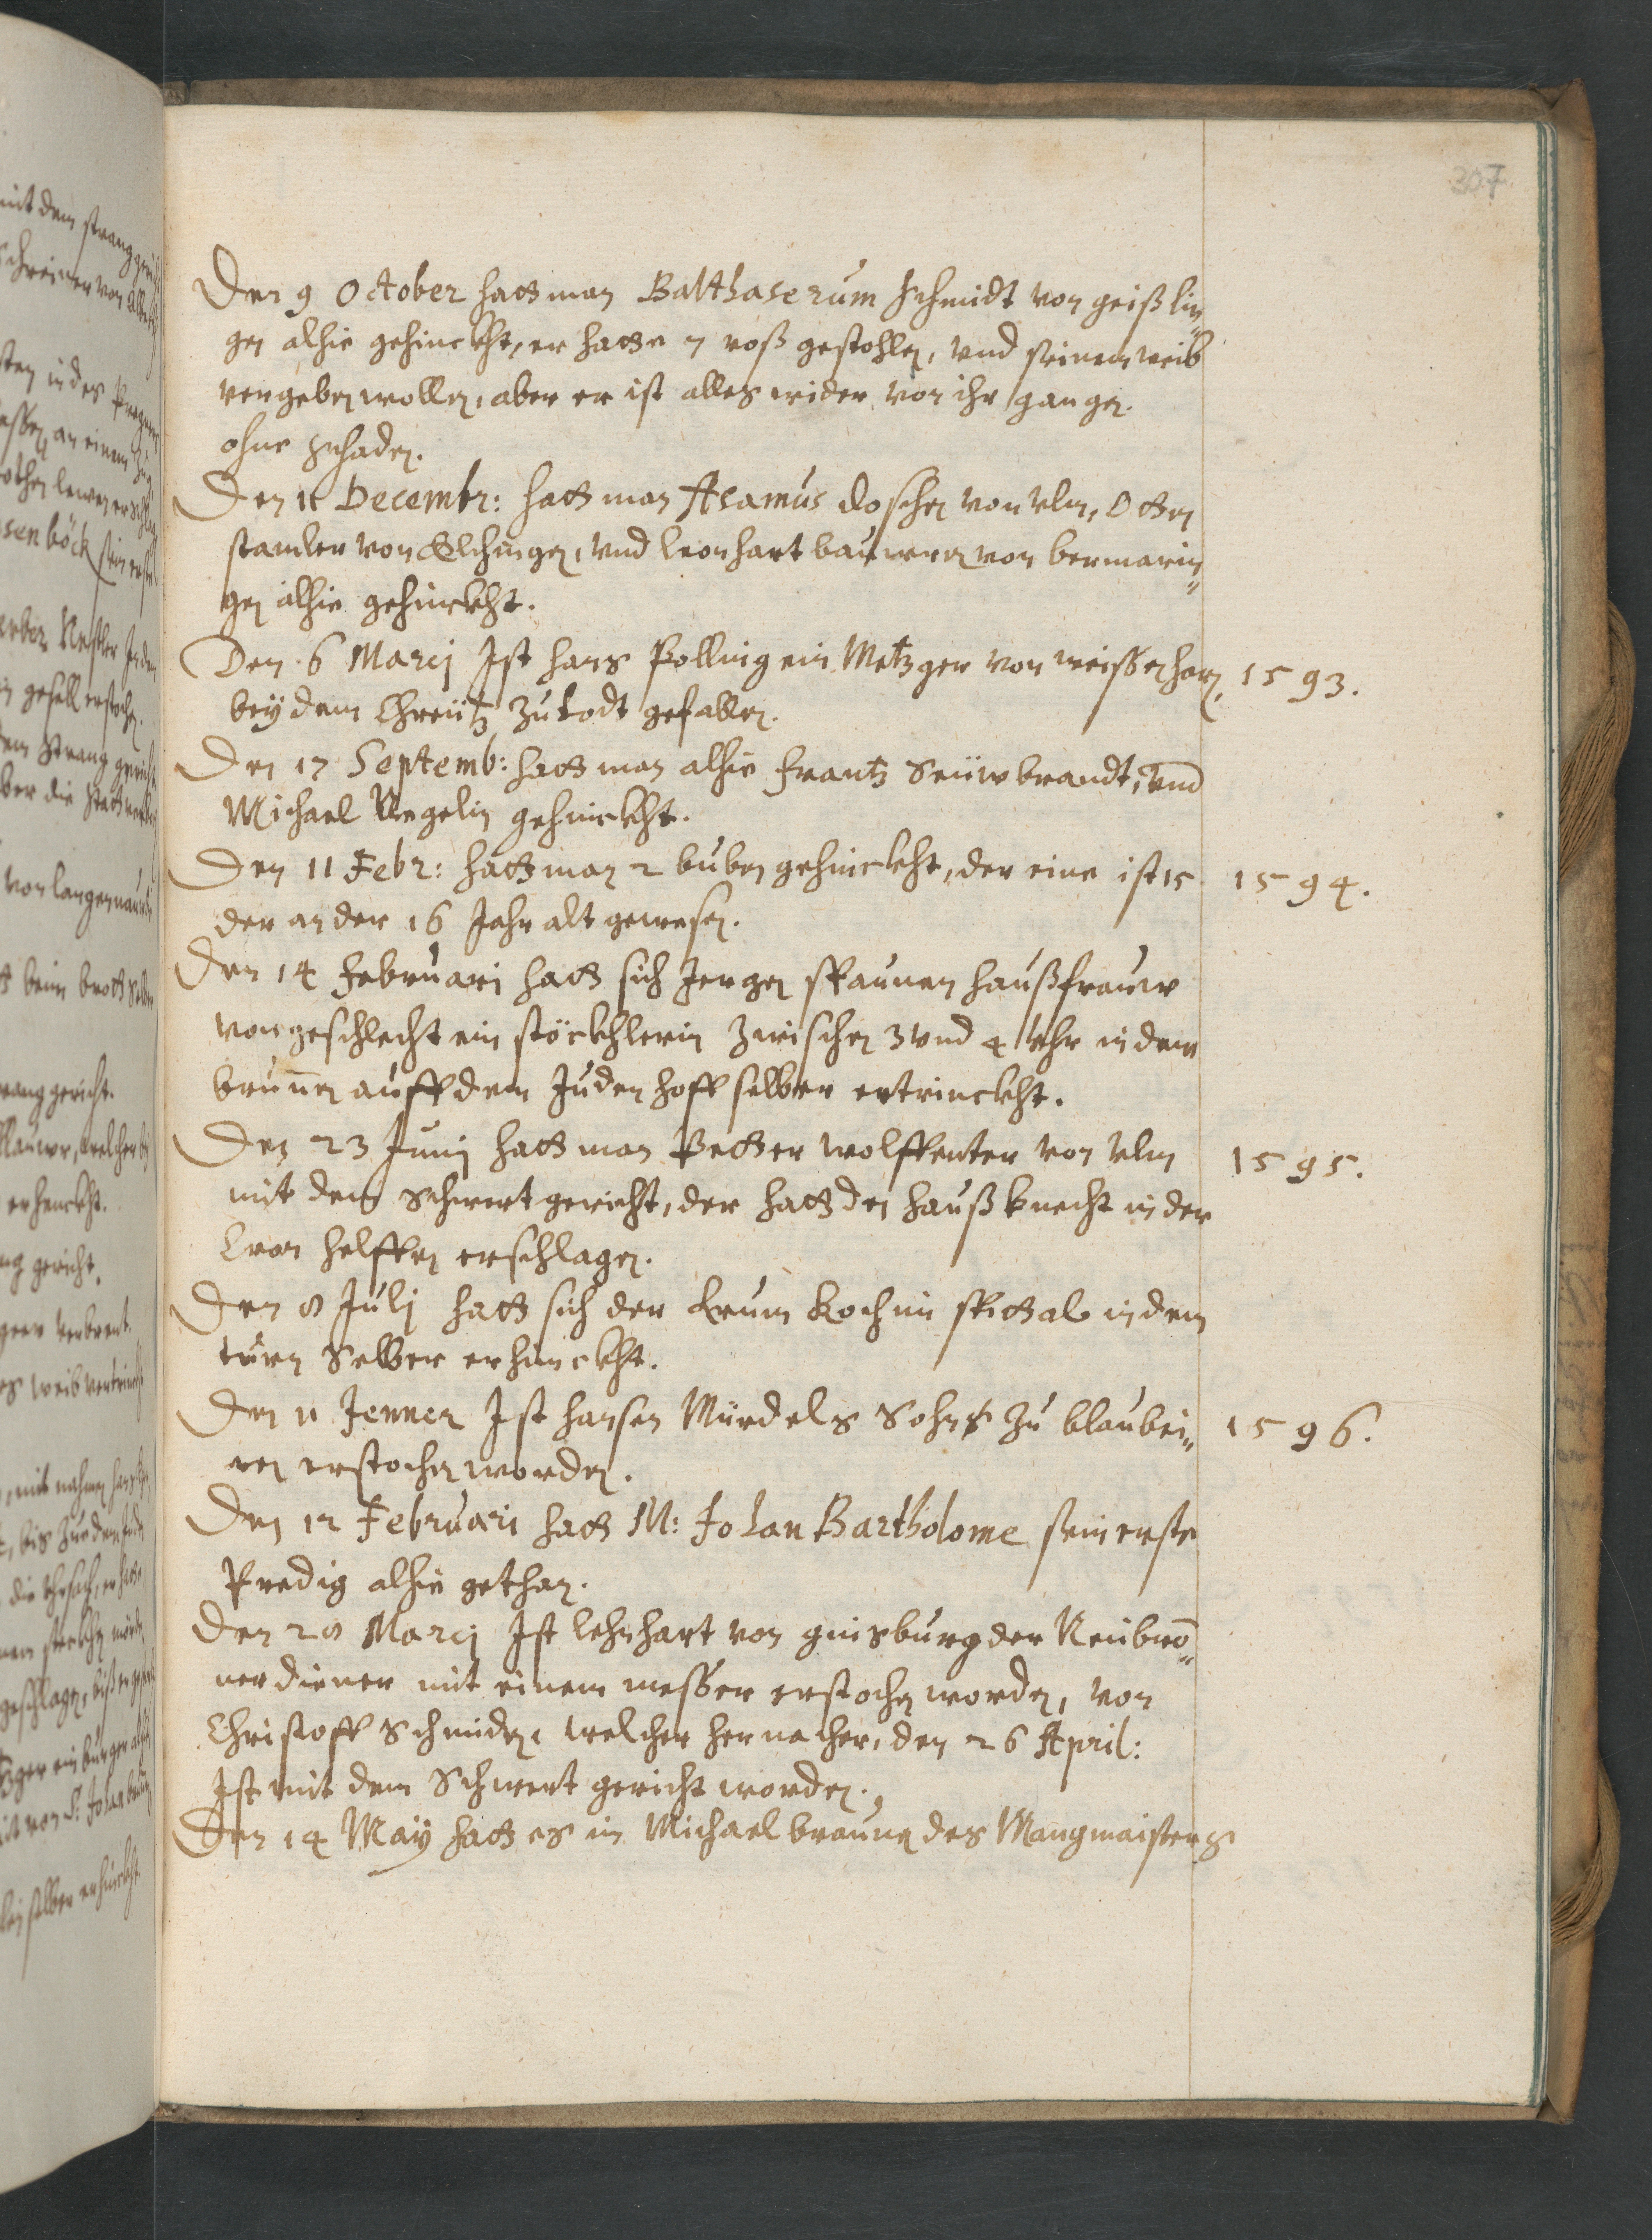 307
Den 9 October hatt man Balthaserum schmidt von geißlin„
gen alhie gehenckht, er hatte 7 roß gestohlen, vnd seinem weib
vergeben wollen, aber es ist alles wider von ihr gangen.
ohne schaden.
Den 11 Decembr: hatt man Asamus doschen von vlm, Otten
stamler von Elchingen, vnd leonhart bauwren von bermarin„
gen alhie gehenckht.
Den 6 Marcj Ist hans Polling ein Metzger von weissenhorn, 1593.
bey dem Chreütz zu todt gefallen.
Den 17 Septemb: hatt man alhie frantz Seüwbrandt, vnd
Michael Negelin gehenckht.
Den 11 Febr: hatt man 2 buben gehenckht, der eine ist 15 1594.
der ander 16 Jahr alt gewesen.
Den 14 Februarj hatt sich Jergen spaunen haußfrauw
von geschlecht ein stöckhlerin zwischen 3 vnd 4 Vhr in dem
brunnen auff dem Juden hoff selber ertrenckht.
Den 23 Junj hatt man Petter wolffenter von vlm 1595.
mit dem schwert gericht, der hatt den haußknecht in der
Cron helffen erschlagen.
Den 8 Julj hatt sich der krum koch im spittal in dem
turn selber erhenckht.
Den 11 Jenner Ist hansen Mürdels Sohn zu blaubei„ 1596.
ren erstochen worden.
Den 12 Februari hatt M: Johan Bartholome sein erste
Predig alhie gethan.
Den 28 Marcj Ist lehnhart von ginsburg der Neubrō„
ner diener mit einem messer erstochen worden, von
Christoff Schmiden, welcher hernacher, den 26 April:
Ist mit dem Schwert gericht worden.
Den 14 May hatt es in Michael braunen des Mangmaisters